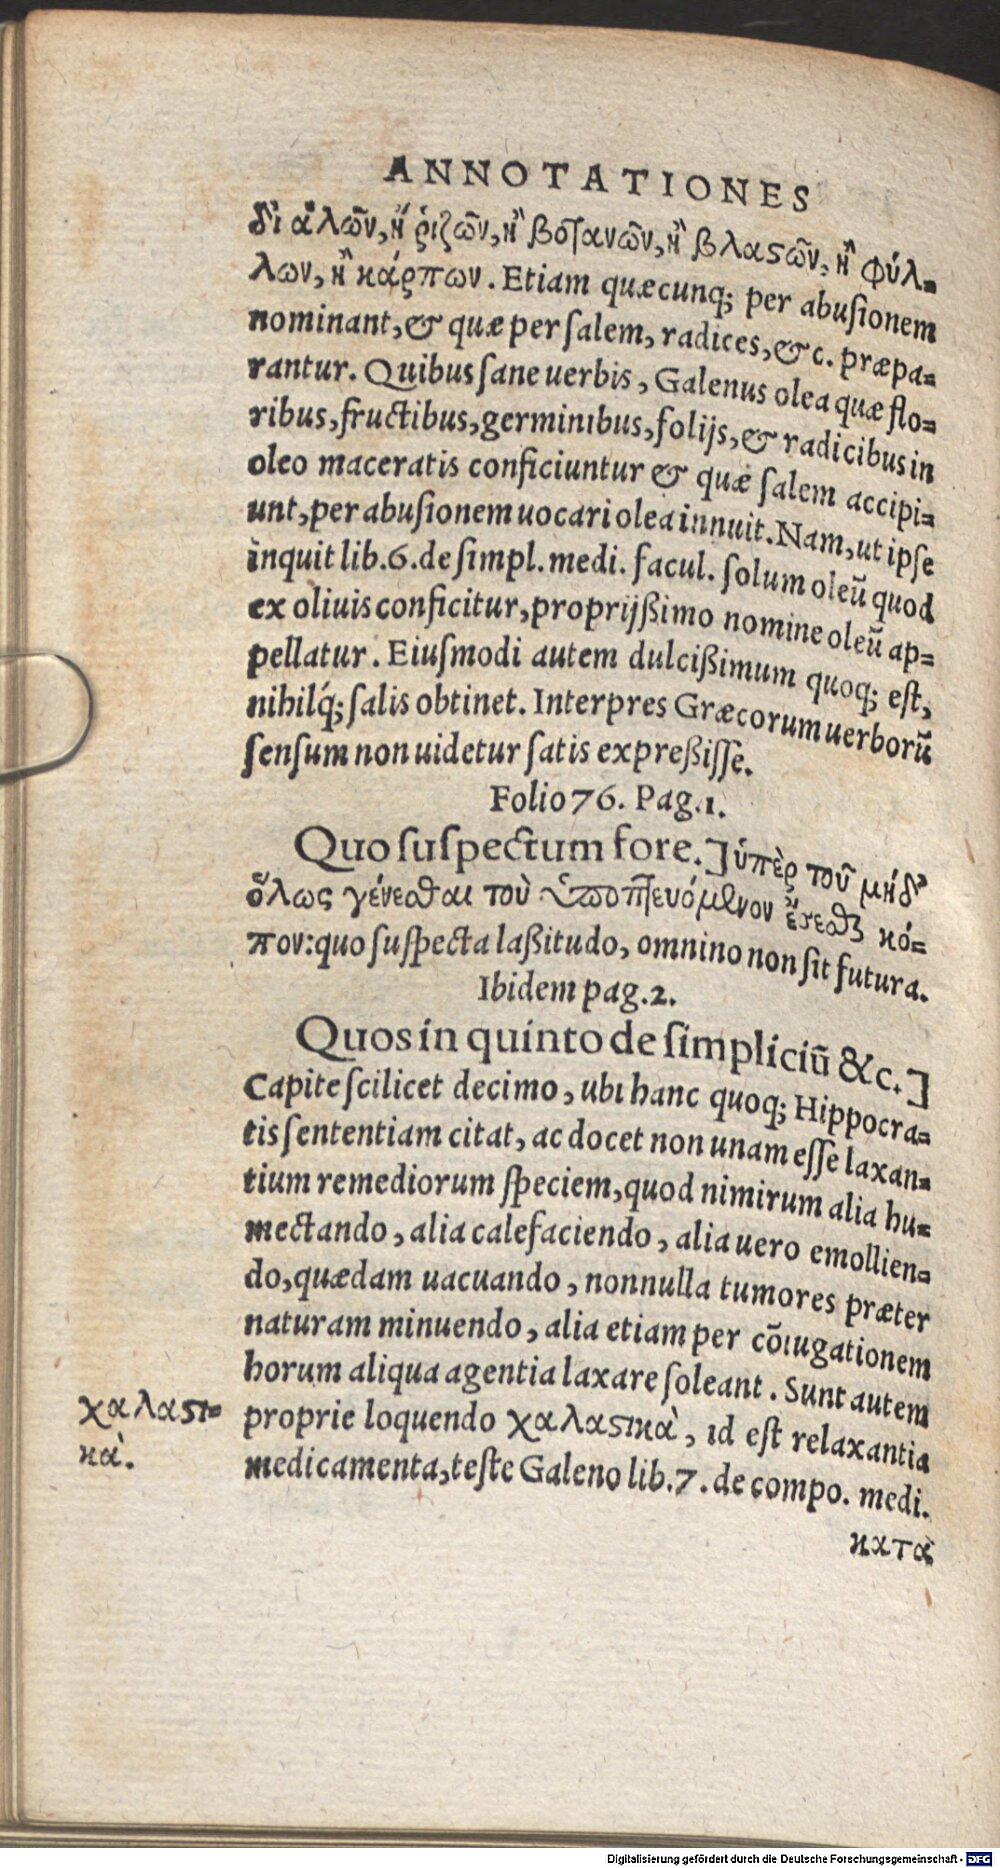 ANNOTATIONES
δι ἁλῶν, ἢ ῥιζῶν, ἢ βοτανῶν, ἢ βλαςῶν, ἢ φύλ=
λων, ἢ κάρπων. Etiam quæcunq; per abuſionem
nominant, & quæ per ſalem, radices, &c. præpa=
rantur. Quibus ſane uerbis, Galenus olea quæ flo=
ribus, fructibus, germinıbus, folijs, & radicibus in
oleo maceratis conficiuntur & quæ ſalem accipi=
unt, per abuſionem uocari olea innuit. Nam, ut ipſe
inquit lib.6. de ſimpl. medi. facul. ſolum oleū quod
ex oliuis conficitur, proprijßimo nomine oleū ap=
pellatur. Eiuſmodi autem dulcißimum quoq; eſt,
nihilq́; ſalis obtinet. Interpres Græcorum uerborū
ſenſum non uidetur ſatis expreßiſſe.
Folio 76. Pag.1.
Quo ſuſpectum fore.] ὑπὲρ τοῦ μήδ'
ὅλως γένεσθαι τοὺ ὑποπτευόμενον ἔσεσθαι κό=
πον: quo ſuſpecta laßitudo, omnino non ſit futura.
Ibidem pag.2.
Quos in quinto de ſimpliciū &c.]
Capite ſcilicet decimo, ubı hanc quoq; Hippocra=
tis ſententiam citat, ac docet non unam eſſe laxan=
tium remediorum ſpeciem, quod nimirum alia hu=
mectando, alia calefaciendo, alia uero emollien=
do, quædam uacuando, nonnulla tumores præter
naturam minuendo, alia etiam per cōıugationem
horum aliqua agentia laxare ſoleant. Sunt autem
χαλαςι=
κὰ.
proprie loquendo χαλαςικὰ, ıd eſt relaxantia
medicamenta, teſte Galeno lib.7. de compo. medi.
κατὰ
Digitalisierung gefördert durch die Deutsche Forschungsgemeinschaft - DFG